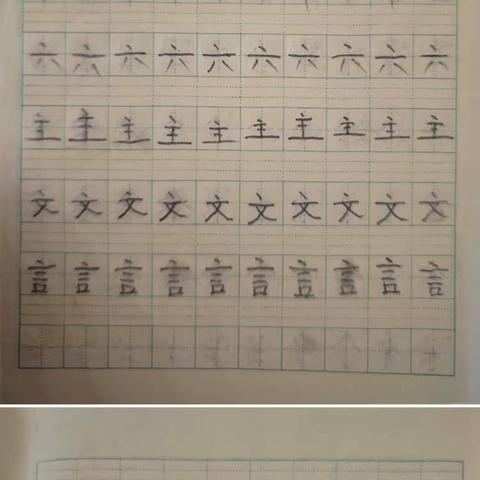 六六六六六六六六六六
主主主主主主主主主主
文文文文文文文文文文
言言言言言言言言言言